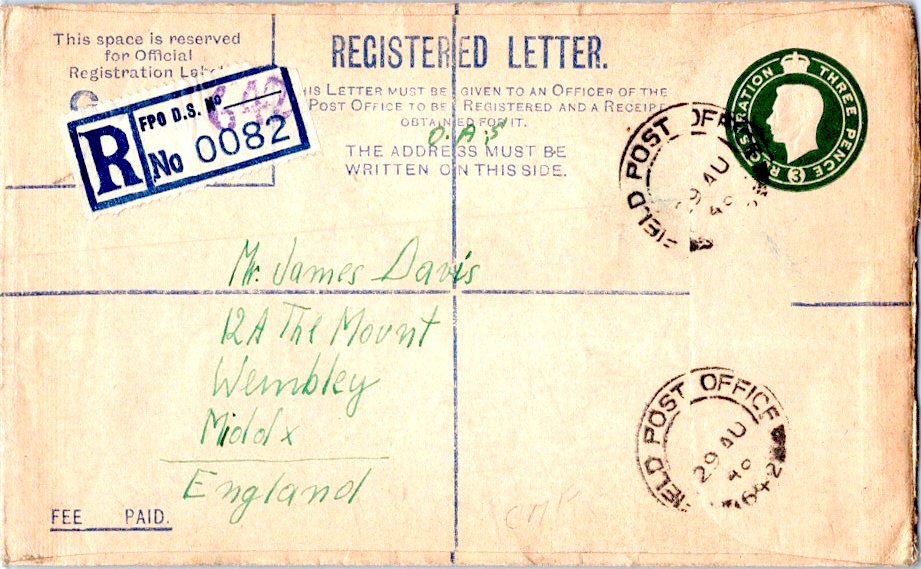 This space is reserved
for Official
Registration Label
REGISTERED LETTER.
THIS LETTER MUST BE GIVEN TO AN OFFICER OF THE
POST OFFICE TO BE REGISTERED AND A RECEIPT
OBTAINED FOR IT.
O.A.S
THE ADDRESS MUST BE
WRITTEN ON THIS SIDE.
R
FPO D.S. No
642
No 0082
REGISTRATION THREE PENCE
3
FIELD POST OFFICE
29 AU
Mr. James Davis
12A The Mount
Wembley
Middx
England
FIELD POST OFFICE
29 AU
642
FEE PAID.